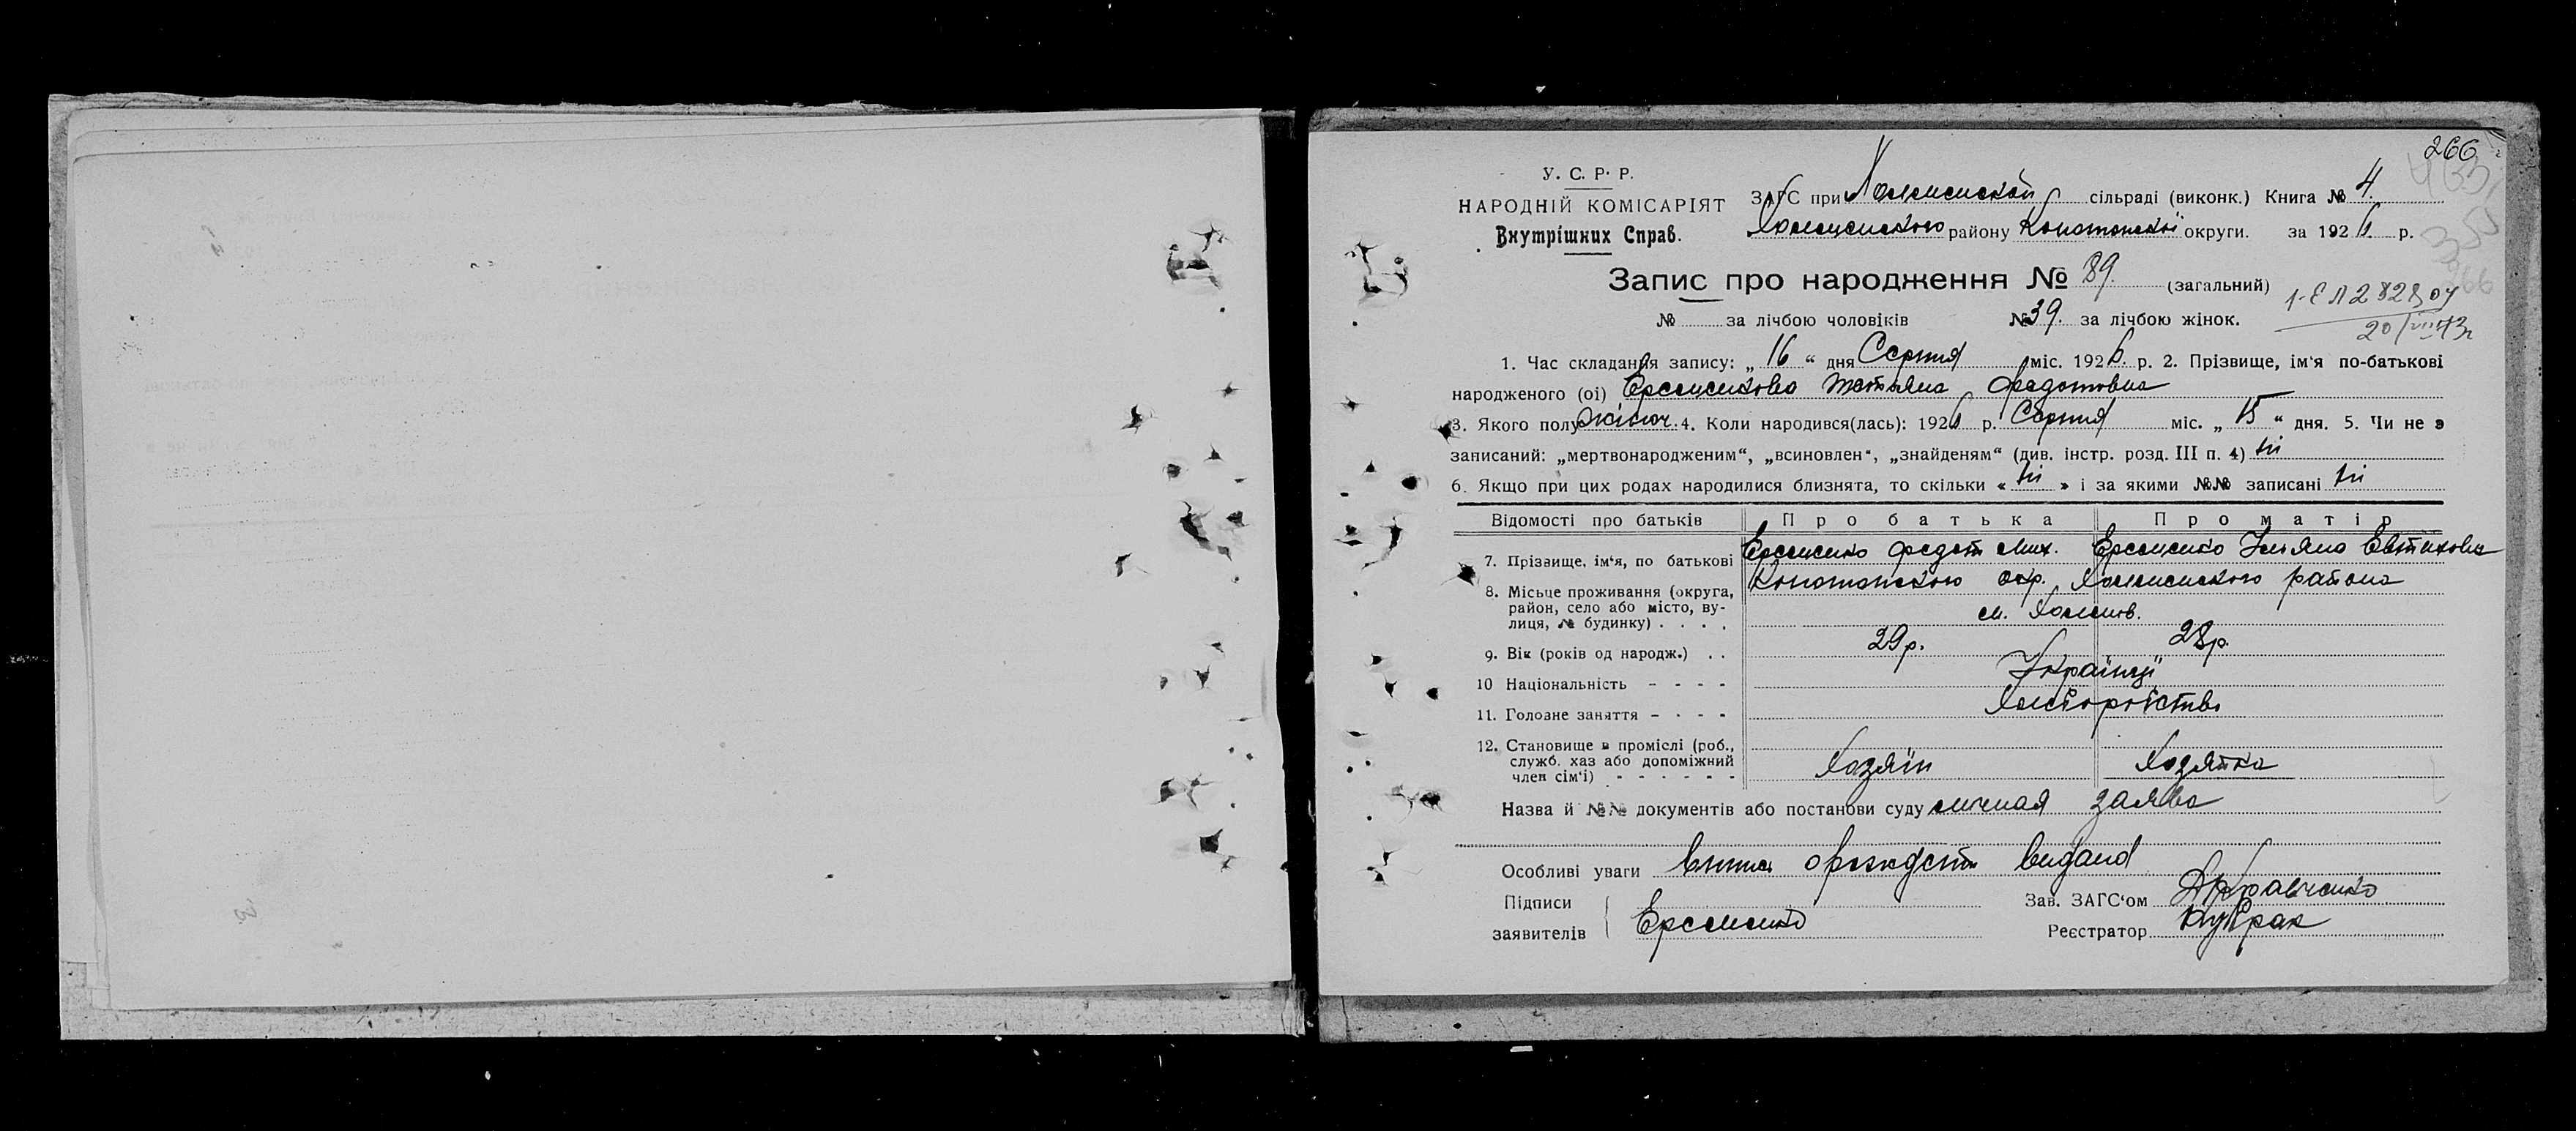 266
У. С. Р. Р.
НАРОДНІЙ КОМІСАРІЯТ
Внутрішних Справ.
ЗАГС при Холменской сільраді (виконк.) Книга № 4.
Холменского району Конотопської округи. за 1926. р.
Запис про народження № 89. (загальний)
№ за лічбою чоловіків № 39. за лічбою жінок.
20/VIII 73г
1. Час складання запису: „ 16 “ дня Серпня міс. 1926. р. 2. Прізвище, ім‘я по-батькові
народженого (ої) Татьяна Федотовна
3. Якого полу жіноч. 4. Коли народився(лась): 1926 р. Серпня міс. „ 15 “ дня. 5. Чи не э
записаний: „мертвонародженим“, „всиновлен“, „знайденям“ (див. інстр. розд. III п. 4) ні
6. Якщо при цих родах народилися близнята, то скільки « ні » і за якими №№ записані ні
Відомості про батьків Про батька Про матір
7. Прізвище, ім‘я, по батькові Еременко Федот Мих. Еременко Ульяна Евтиховна
8. Місьце проживання (округа, Конотопского окр. Холменского района
район, село або місто, ву-
лиця, № будинку) . . . . м. Холмов.
9. Вік (років од народж.) . . 29 р. 28 р.
10 Національність - - - - Українці
11. Головне заняття - - - - Хліборобство
12. Становище в проміслі (роб.,
служб. хаз або допоміжний
член сім‘ї) - - - - - - Хозяїн Хозяйка
Назва й №№ документів або постанови суду личная заява
Особливі уваги видана
Підписи Зав. ЗАГС‘ом Кравченко
заявителів Еременко Реєстратор